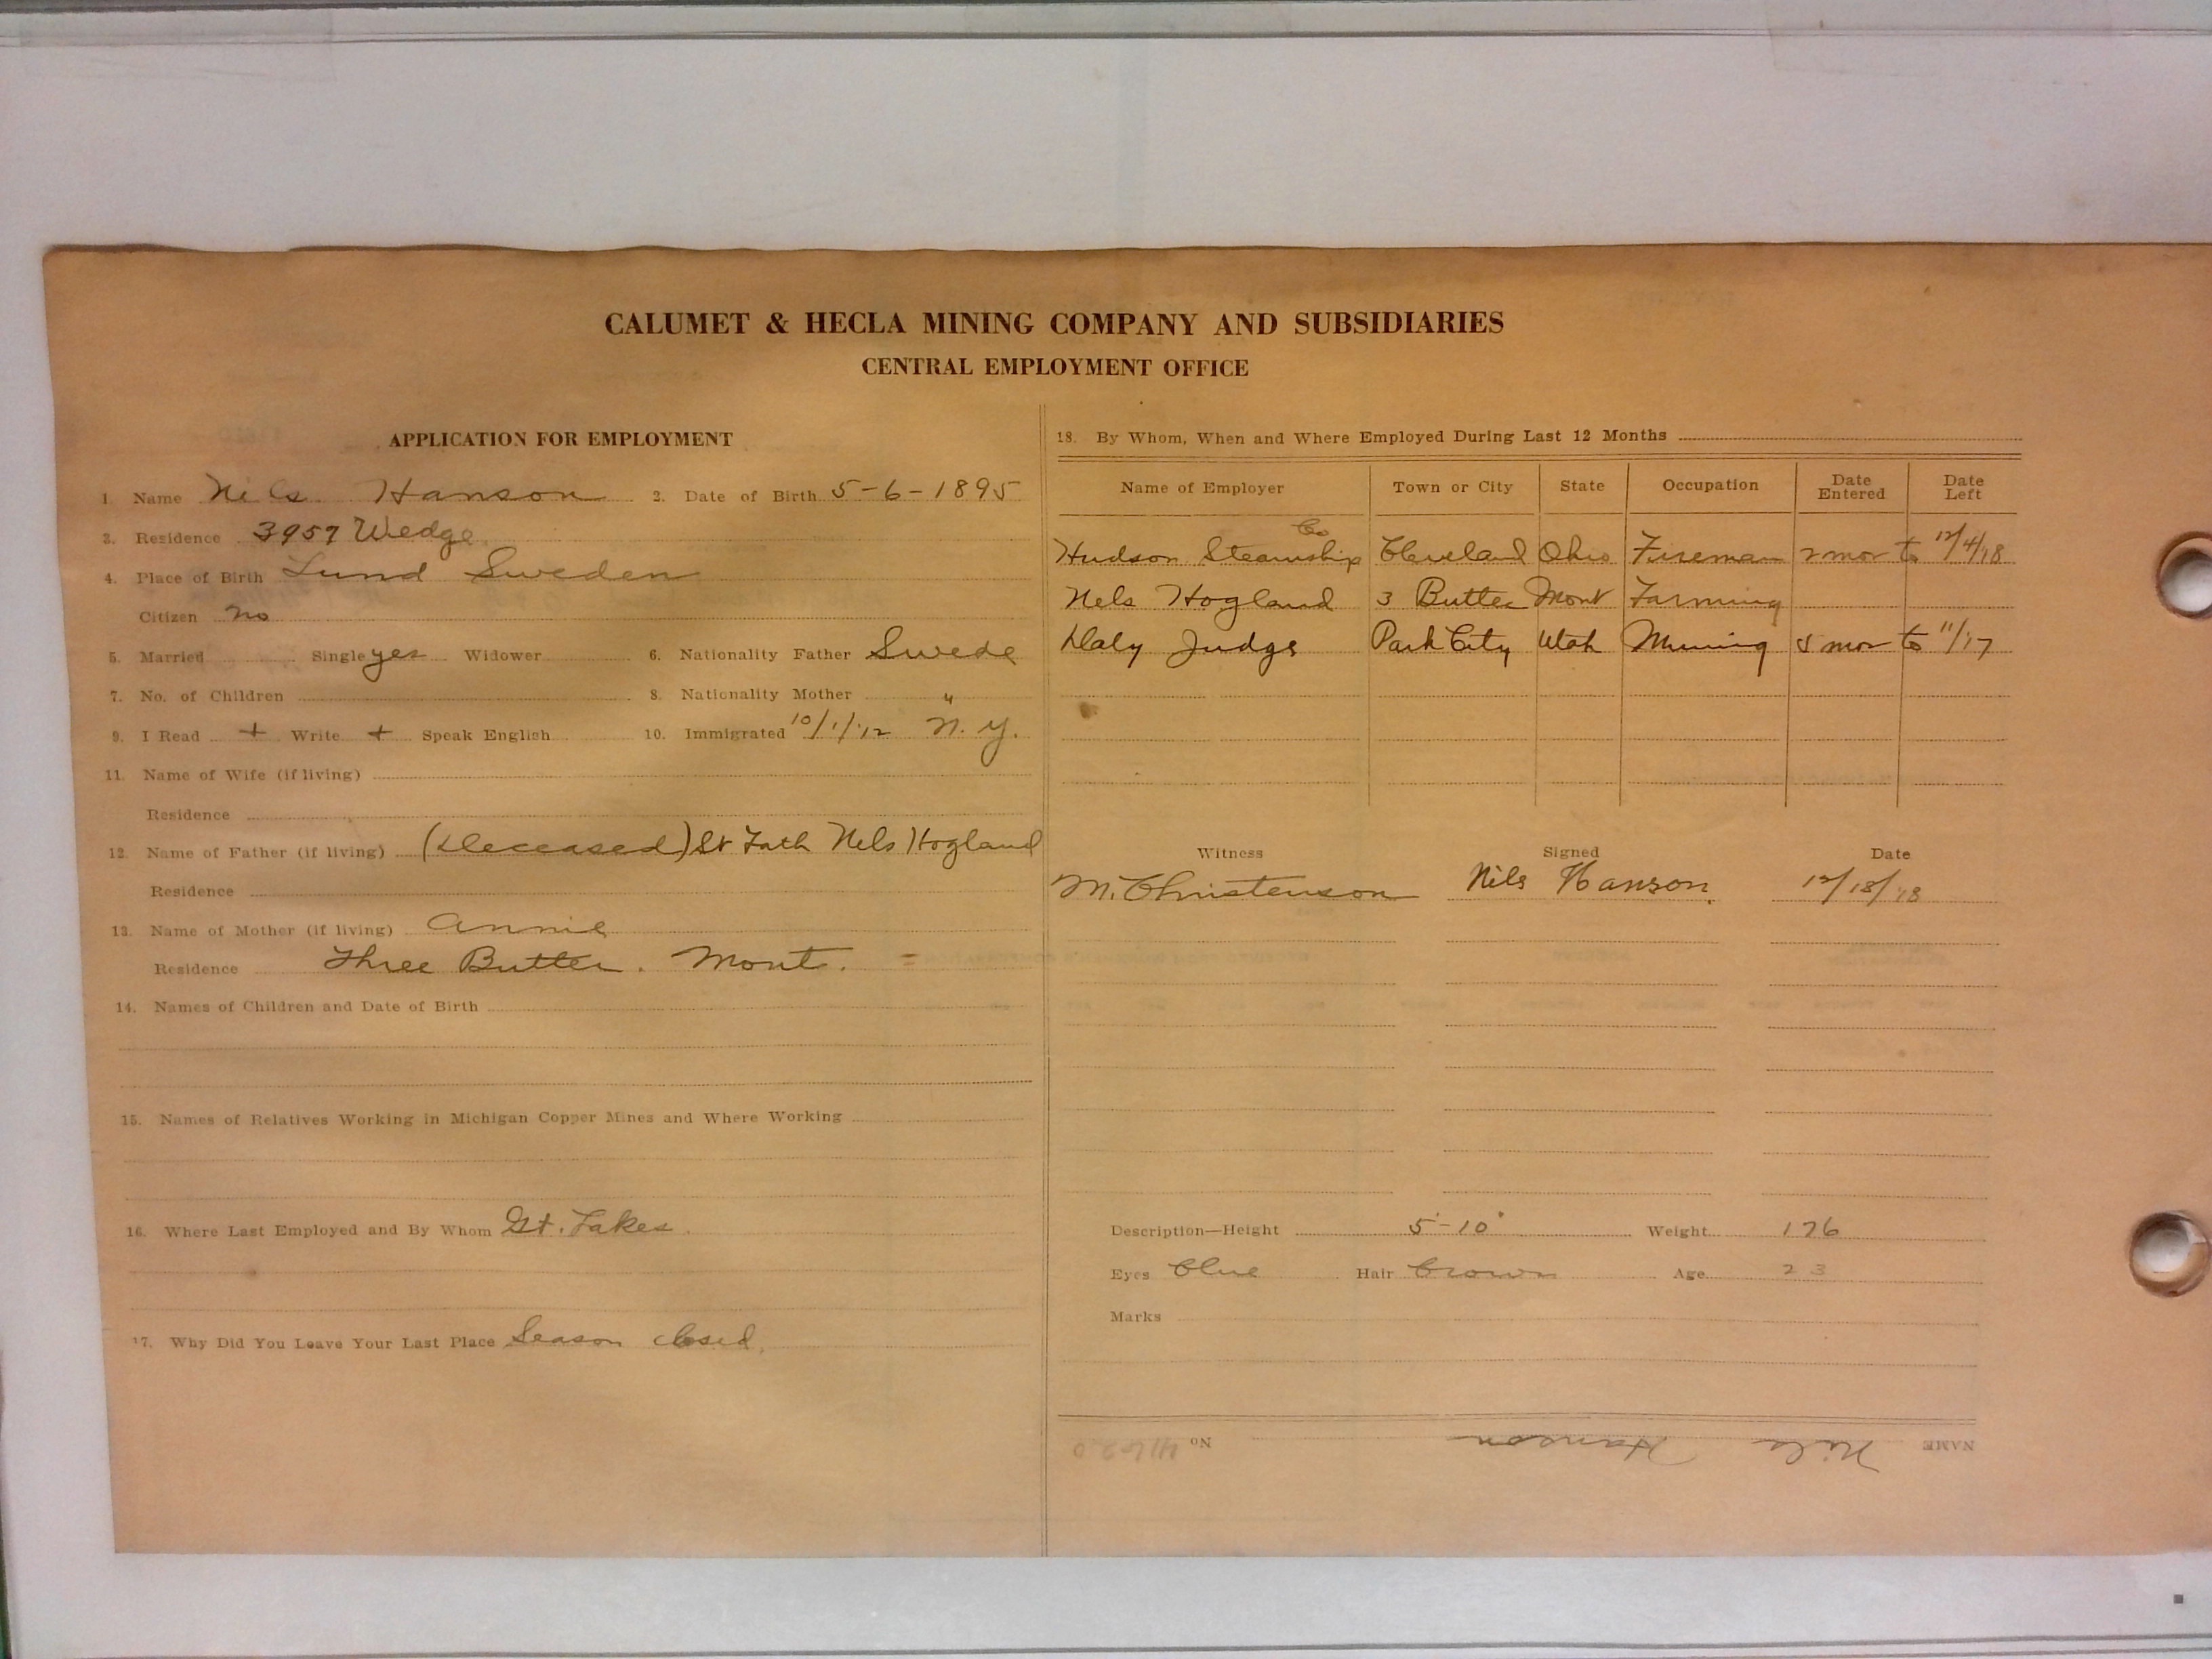 CALUMET & HECLA MINING COMPANY AND SUBSIDIARIES
CENTRAL EMPLOYMENT OFFICE
APPLICATION FOR EMPLOYMENT
1. Name Nils Hanson 2. Date of Birth 5-6-1895
3. Residence 3957 Wedge
4. Place of Birth Lund Sweden
Citizen no
5. Married Single yes Widower 6. Nationality Father Swede
7. No. of Children 8. Nationality Mother "
9. I Read + Write + Speak English 10. Immigrated 10/1/'12 N.Y.
11. Name of Wife (if living)
Residence
12. Name of Father (if living) (Deceased) St Fath Nels Hogland
Residence
13. Name of Mother (if living) Annie
Residence Three Buttes. Mont.
14. Names of Children and Date of Birth
15. Names of Relatives Working in Michigan Copper Mines and Where Working
16. Where Last Employed and By Whom Gt. Lakes
17. Why Did You Leave Your Last Place Season closed.
18. By Whom, When and Where Employed During Last 12 Months
Name of Employer Town or City State Occupation Date Entered Date Left
Hudson Steamship Co Cleveland Ohio Fireman 2 mos to 12/4/18
Nels Hogland 3 Buttes Mont Farming
Daly Judge Park City Utah Mining 5 mos to 11/17
Witness Signed Date
M. Christenson Nils Hanson. 12/18/'18
Description—Height 5'-10" Weight 176
Eyes Blue Hair Brown Age 23
Marks
NAME Nils Hanson No